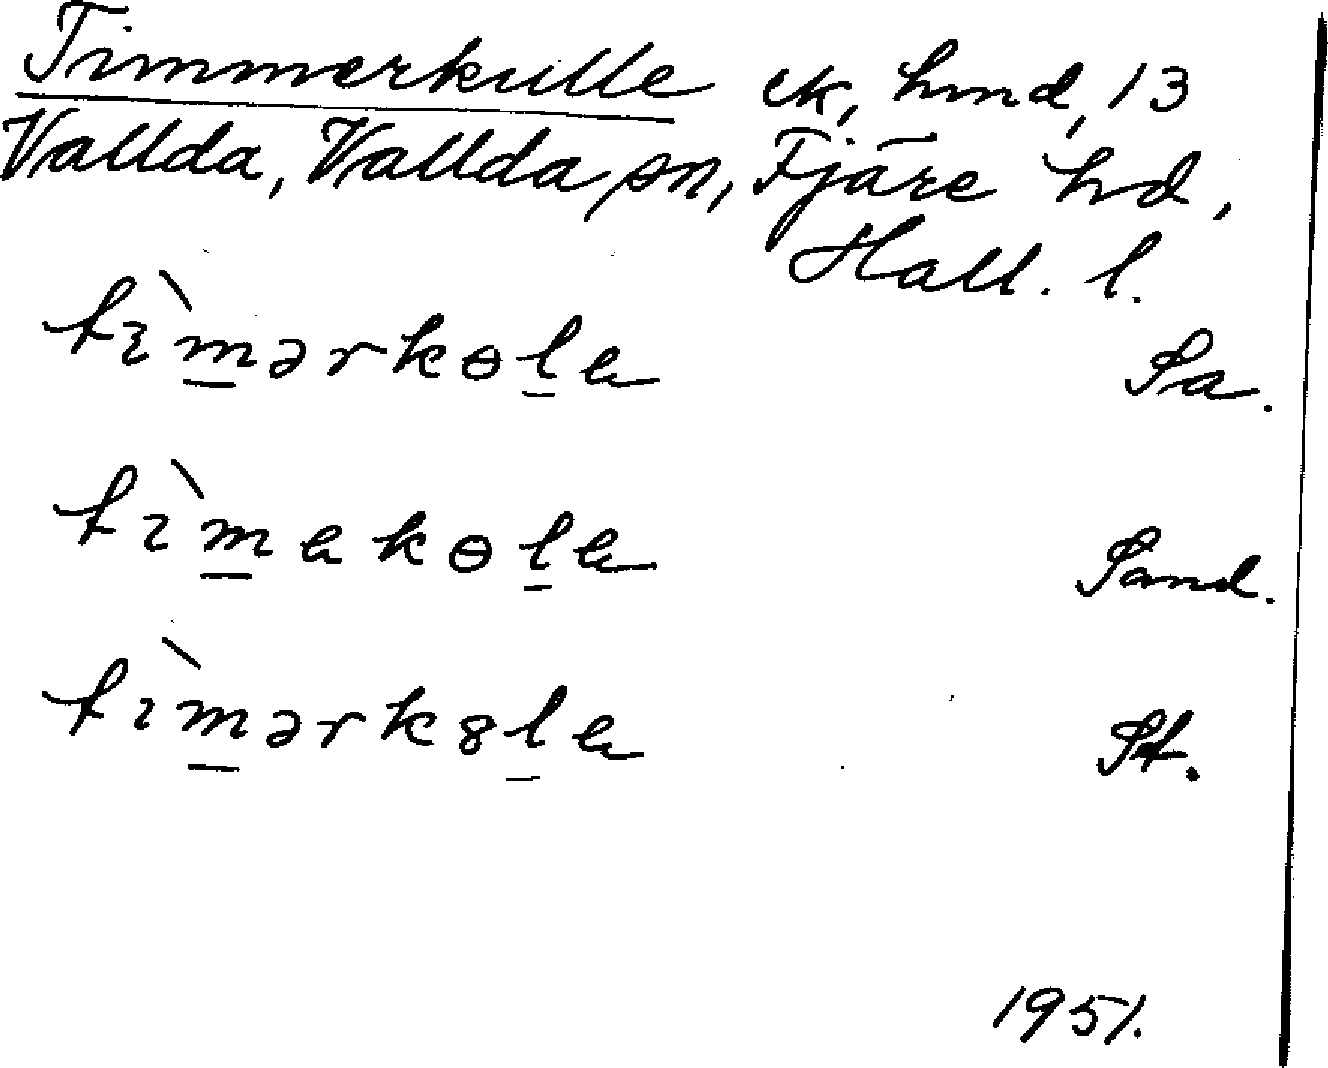 Timmerkulle ck, hmd, 13
Vallda, Vallda sn, Fjäre hd,
Hall. l.
tɩ̀m̲ərkɵl̲e Sa.
tɩ̀m̲ekɵl̲e Sand.
tɩ̀m̲ərk8l̲e St.
1951.